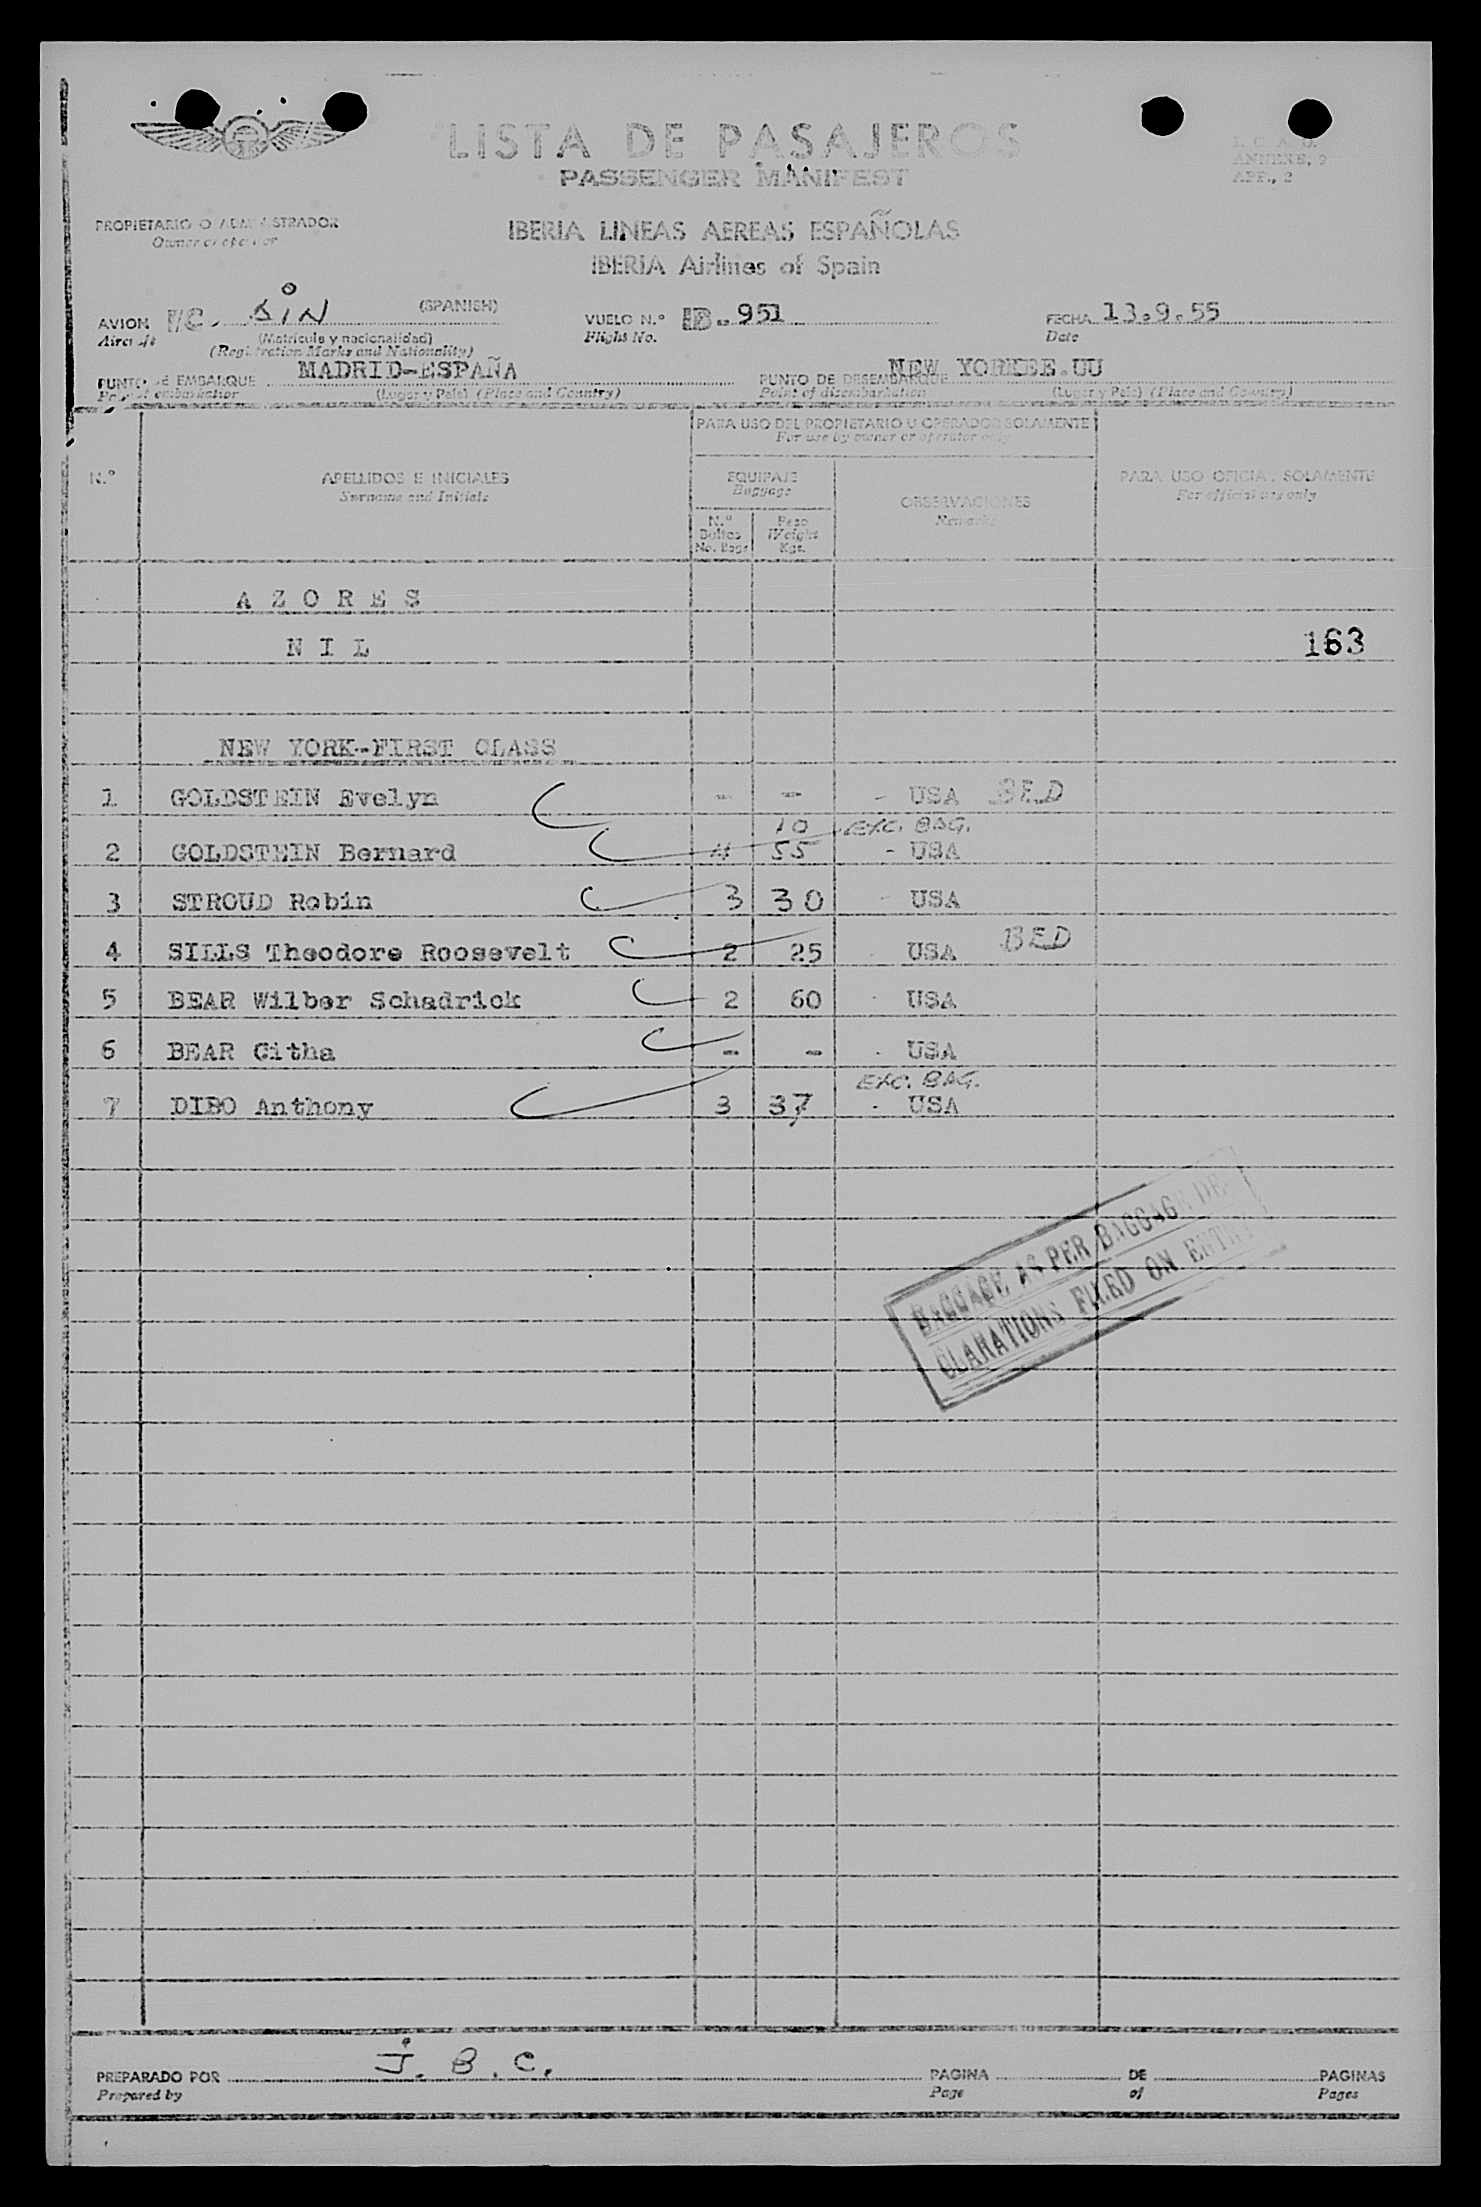 LISTA DE PASAJEROS
PASSENGER MANIFEST
I. C. A. O.
ANNEXE, 9
APP., 2
PROPIETARIO O ADMINISTRADOR
Owner or operator
IBERIA LINEAS AEREAS ESPAÑOLAS
IBERIA Airlines of Spain
AVION EC. AIN (SPANISH)
Aircraft
(Matrícula y nacionalidad)
(Registration Marks and Nationality)
VUELO N.º IB.. 951
Flight No.
FECHA 13.9.55
Date
PUNTO DE EMBARQUE MADRID-ESPAÑA
Point of embarkation (Lugar y País) (Place and Country)
PUNTO DE DESEMBARQUE NEW YORKEE.UU
Point of disembarkation (Lugar y País) (Place and Country)
N.º
APELLIDOS E INICIALES
Surname and Initials
PARA USO DEL PROPIETARIO U OPERADOR SOLAMENTE
For use by owner or operator only
EQUIPAJE
Baggage
N.º Bultos No. Bags
Peso Weight Kgs.
OBSERVACIONES
Remarks
PARA USO OFICIAL SOLAMENTE
For official use only
A Z O R E S
N I L
163
NEW YORK-FIRST CLASS
1 GOLDSTEIN Evelyn - - - USA BED
10 EXC. BAG.
2 GOLDSTEIN Bernard 4 55 - USA
3 STROUD Robin 3 30 - USA
4 SILLS Theodore Roosevelt 2 25 - USA BED
5 BEAR Wilber Schadrick 2 60 - USA
6 BEAR Citha - - - USA
EXC. BAG.
7 DIBO Anthony 3 37 - USA
BAGGAGE AS PER BAGGAGE DE-
CLARATIONS FILED ON ENTRY
PREPARADO POR J. B. C.
Prepared by
PAGINA DE PAGINAS
Page of Pages